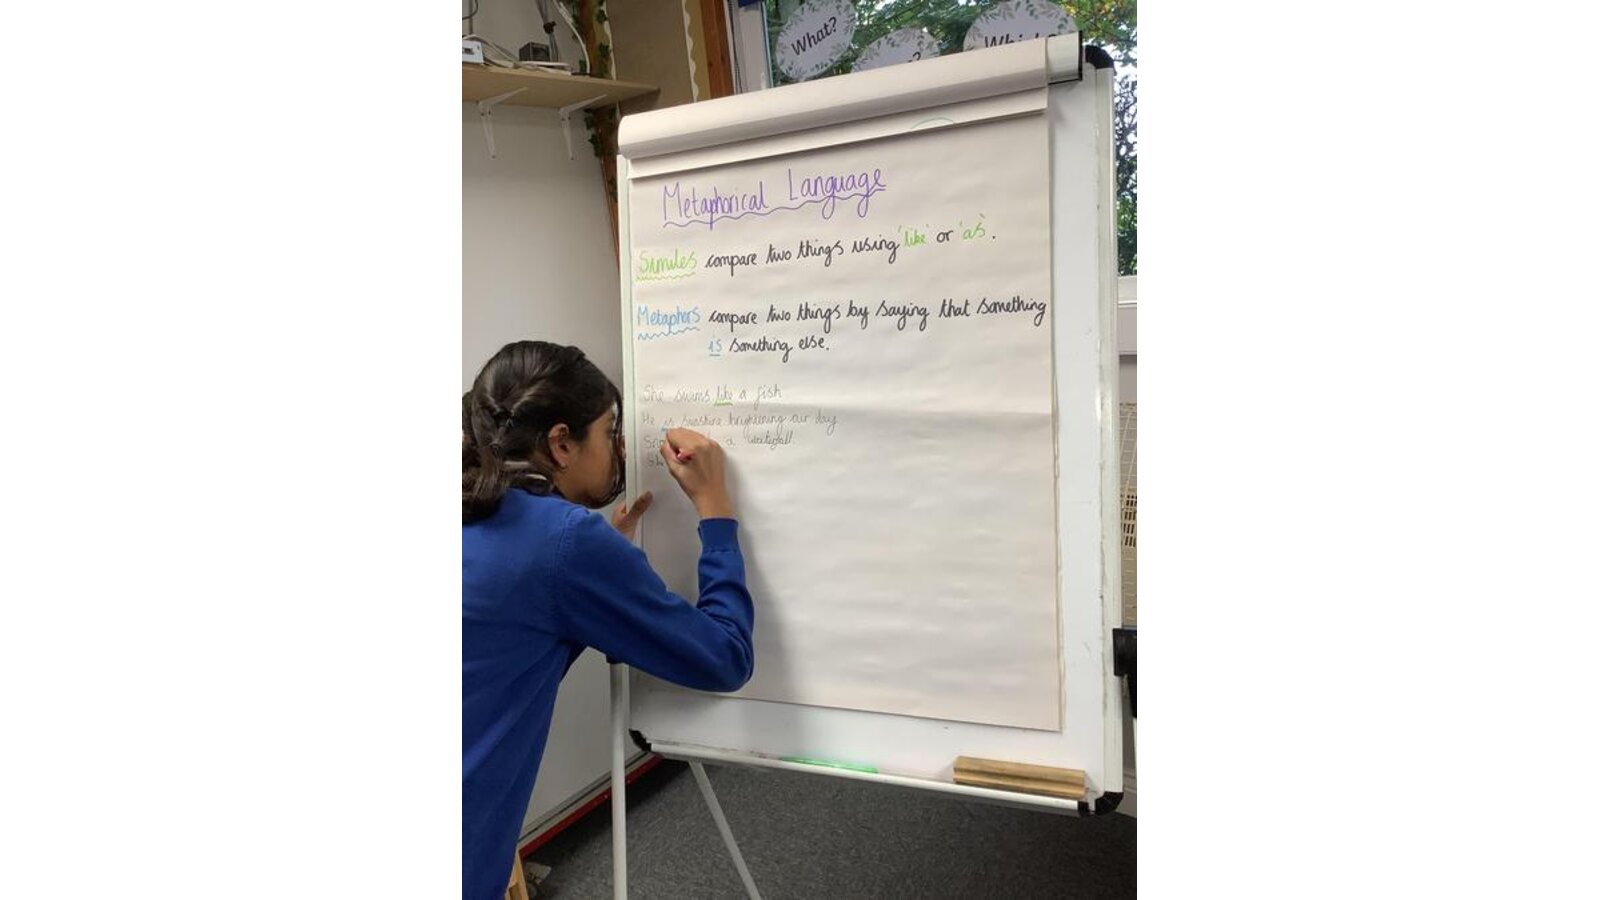 What?
Metaphorical Language
Similes compare two things using 'like' or 'as'.
Metaphors compare two things by saying that something
is something else.
She swims like a fish
He is sunshine brightening our day
a waterfall.